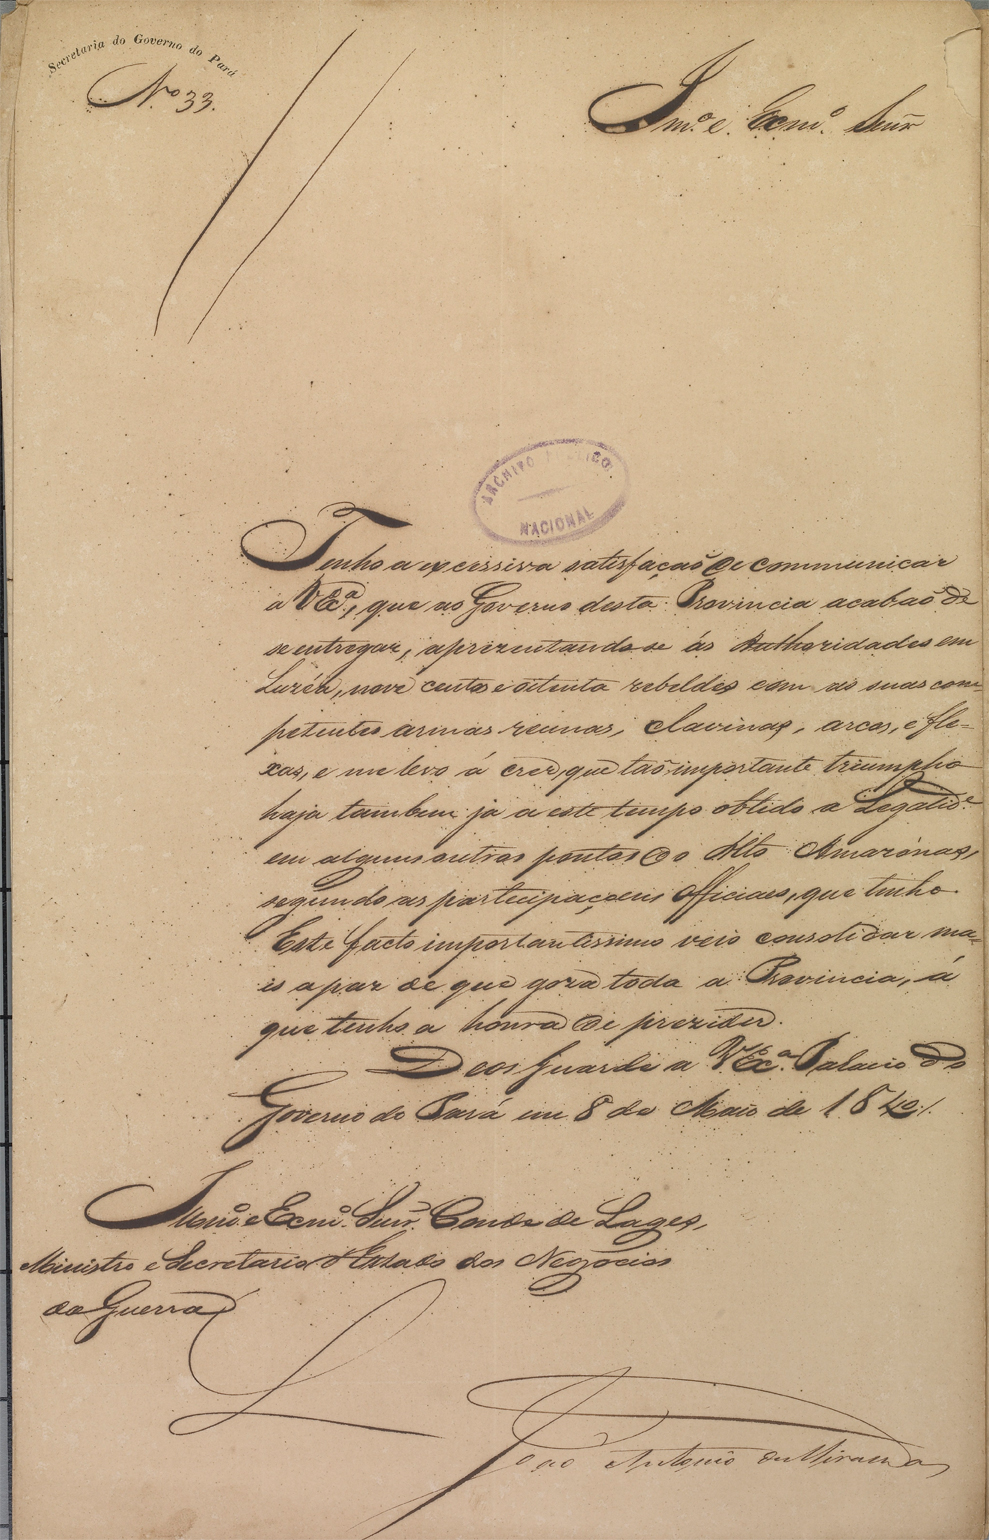 Secretaria do Governo do Pará
Nº 33.
Illmº. e Exmº. Senr
ARCHIVO PUBLICO
NACIONAL
Tenho a excessiva satisfação de communicar
a VExª., que ao Governo desta Provincia acabaõ de
se entregar, aprezentando-se ás Authoridades em
Luzéa, nove centos e oitenta rebeldes com as suas com-
petentes armas reunas, clavinas, arcos, e fle-
xas, e me levo á crer, que taõ importante triumpho
haja tambem já a este tempo obtido a Legalidᵉ
em alguns outros pontos do Alto Amazónas,
segundo as participaçoens officiaes, que tenho
Este facto importantissimo veio consolidar ma-
is a paz de que goza toda a Provincia, á
que tenho a honra de prezider.
Deos Guarde a VExª. Palacio do
Governo do Pará em 8 de Maio de 1840./
Illmº. e Exmº. Senr. Conde de Lages,
Ministro e Secretario d'Estado dos Negocios
da Guerra
João Antonio de Miranda